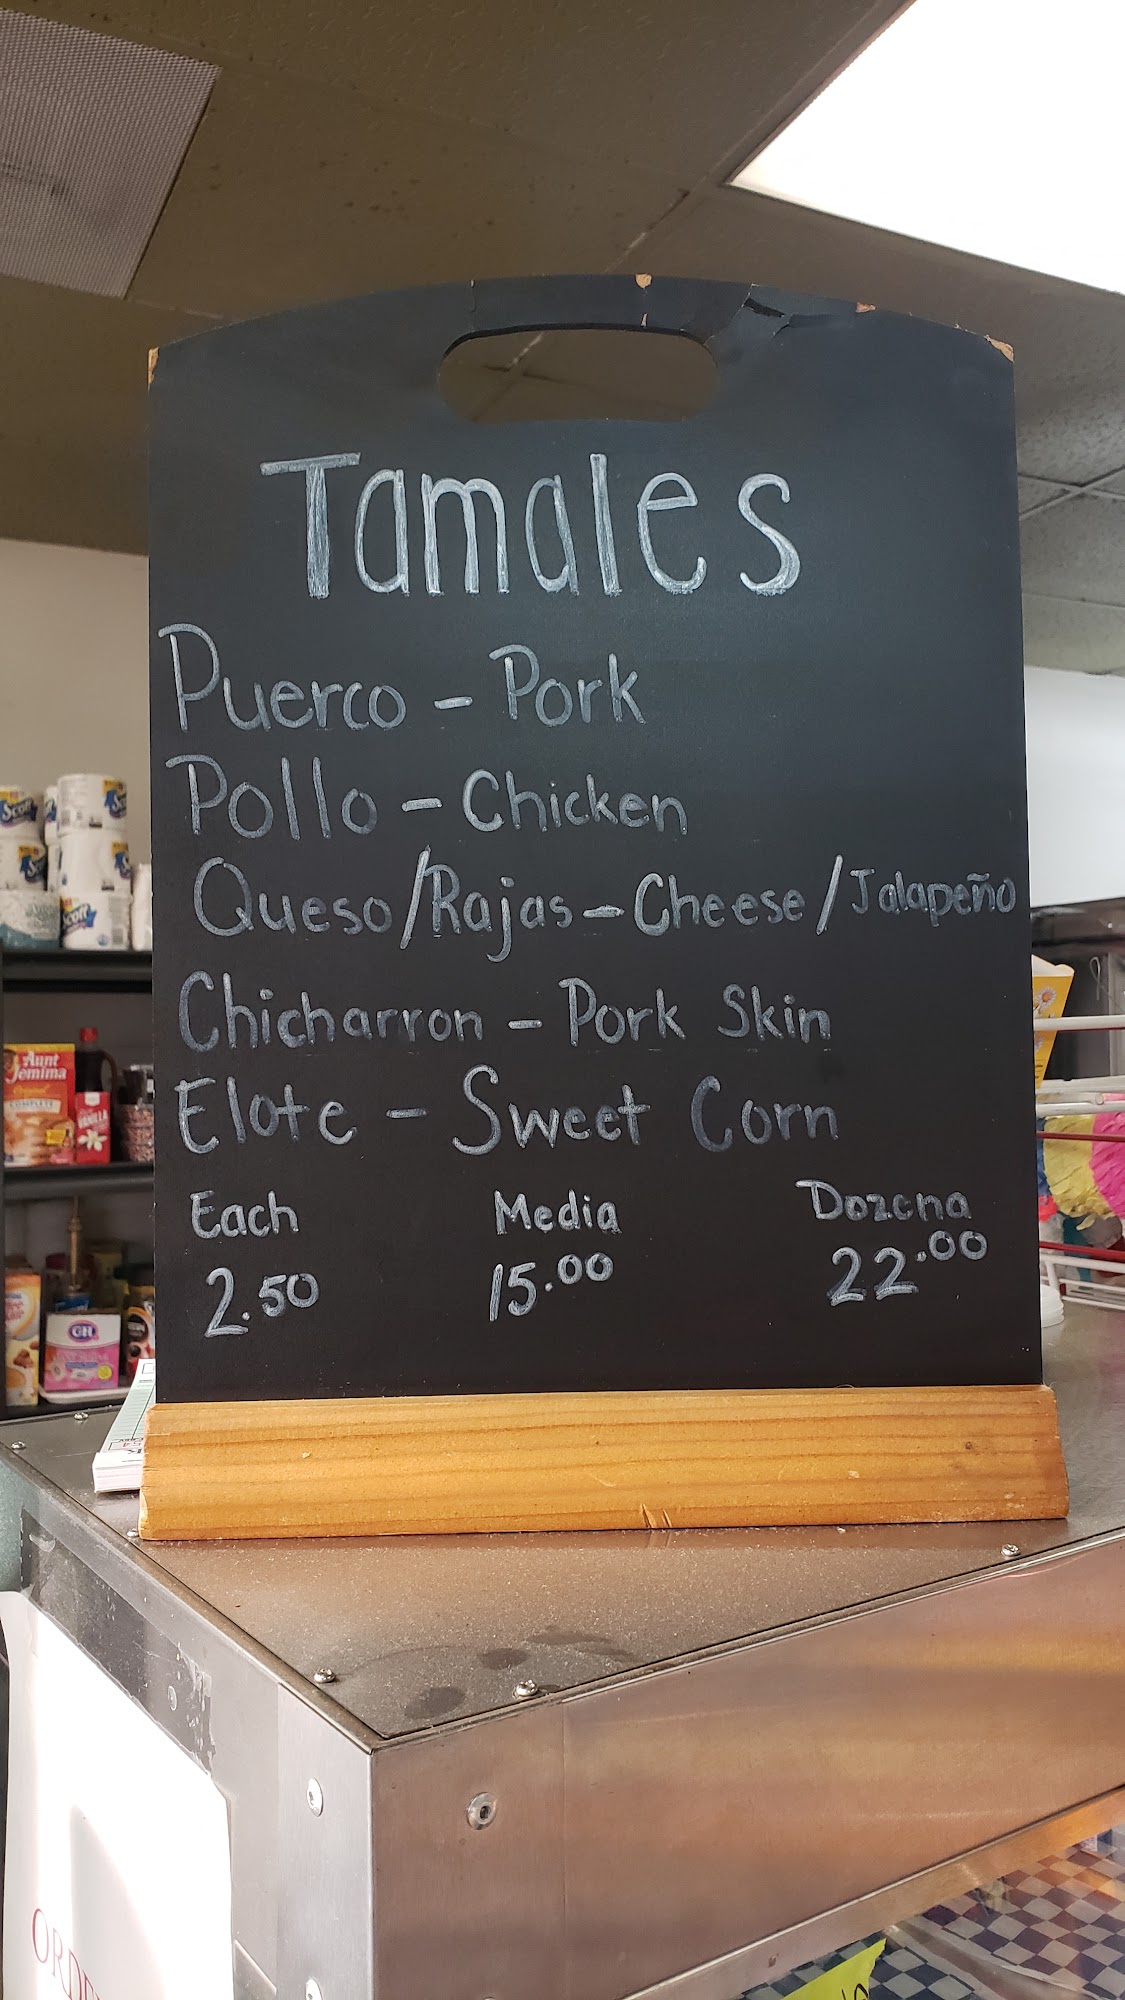 Tamales
Puerco - Pork
Pollo - Chicken
Queso/Rajas - Cheese/Jalapeño
Chicharron - Pork Skin
Elote - Sweet Corn
Each Media Dozena
2.50 15.00 22.00
Scott
Scott
Aunt Jemima
Original
COMPLETE
VANILLA
C&H